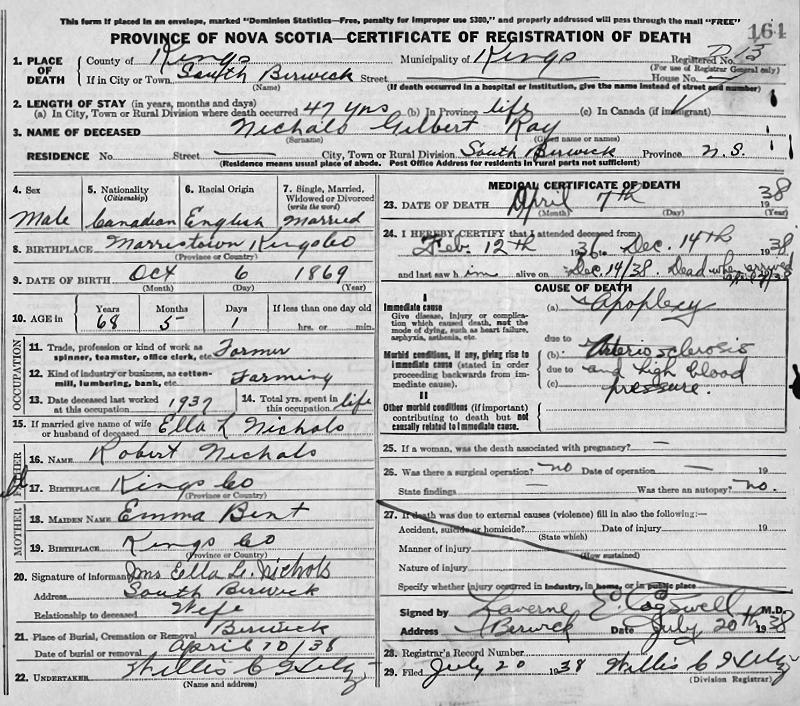 This form if placed in an envelope, marked "Dominion Statistics—Free, penalty for improper use $300," and properly addressed will pass through the mail "FREE"
164
PROVINCE OF NOVA SCOTIA—CERTIFICATE OF REGISTRATION OF DEATH
1. PLACE OF DEATH County of Kings Municipality of Kings Registered No.
(For use of Registrar General only)
If in City or Town South Berwick Street House No.
(Name) (If death occurred in a hospital or institution, give the name instead of street and number)
2. LENGTH OF STAY (in years, months and days)
(a) In City, Town or Rural Division where death occurred 47 yrs (b) In Province life (c) In Canada (if immigrant)
3. NAME OF DECEASED Nichols Gilbert Ray
(Surname) (Given name or names)
RESIDENCE No. Street — City, Town or Rural Division South Berwick Province N.S.
(Residence means usual place of abode. Post Office Address for residents in rural parts not sufficient)
4. Sex Male
5. Nationality (Citizenship) Canadian
6. Racial Origin English
7. Single, Married, Widowed or Divorced (write the word) Married
8. BIRTHPLACE Morristown Kings Co
(Province or Country)
9. DATE OF BIRTH Oct 6 1869
(Month) (Day) (Year)
10. AGE in Years Months Days If less than one day old
68 5 1 hrs. or min.
OCCUPATION
11. Trade, profession or kind of work as spinner, teamster, office clerk, etc. Farmer
12. Kind of industry or business, as cotton-mill, lumbering, bank, etc. Farming
13. Date deceased last worked at this occupation 1937 14. Total yrs. spent in this occupation life
15. If married give name of wife or husband of deceased Ella L Nichols
FATHER
16. NAME Robert Nichols
17. BIRTHPLACE Kings Co
(Province or Country)
MOTHER
18. MAIDEN NAME Emma Bent
19. BIRTHPLACE Kings Co
(Province or Country)
20. Signature of informant Mrs Ella L. Nichols
Address South Berwick
Relationship to deceased Wife
21. Place of Burial, Cremation or Removal Berwick
Date of burial or removal April 10/38
22. UNDERTAKER Willis C
(Name and address)
MEDICAL CERTIFICATE OF DEATH
23. DATE OF DEATH April 7th 38
(Month) (Day) (Year)
24. I HEREBY CERTIFY that I attended deceased from
Feb. 12th 1936 to Dec. 14th 1938
and last saw him alive on Dec. 14/38. Dead when arrived
CAUSE OF DEATH
I
Immediate cause (a) Apoplexy
Give disease, injury or complication which caused death, not the mode of dying, such as heart failure, asphyxia, asthenia, etc.
due to
Morbid conditions, if any, giving rise to immediate cause (stated in order proceeding backwards from immediate cause).
(b) Arterio sclerosis
due to and high blood
(c) pressure.
II
Other morbid conditions (if important) contributing to death but not causally related to immediate cause.
25. If a woman, was the death associated with pregnancy? —
26. Was there a surgical operation? no Date of operation — 19
State findings — Was there an autopsy? no.
27. If death was due to external causes (violence) fill in also the following:—
Accident, suicide or homicide? Date of injury 19
(State which)
Manner of injury
(How sustained)
Nature of injury
Specify whether injury occurred in industry, in home, or in public place
Signed by Laverne E. Cogswell M.D.
Address Berwick Date July 20th 1938
28. Registrar's Record Number
29. Filed July 20 1938 Willis C
(Division Registrar)